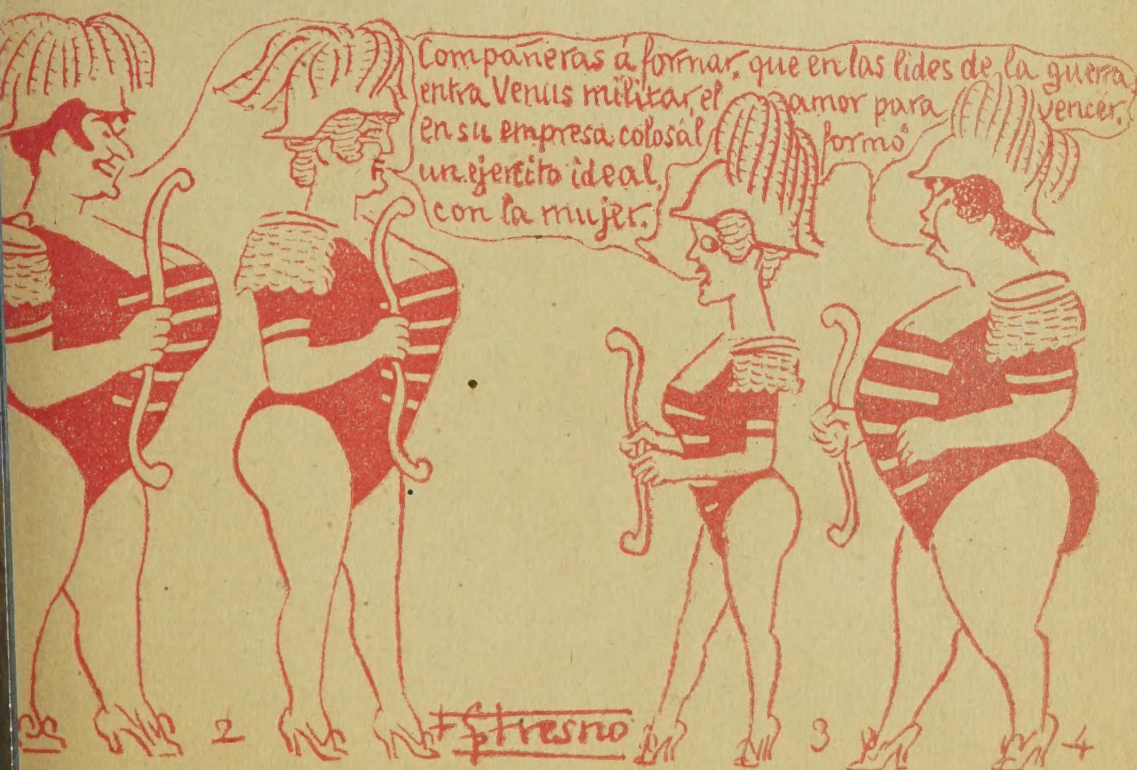 Compañeras á formar, que en las lides de la guerra
entra Venus militar, el amor para vencer,
en su empresa colosal formó
un ejercito ideal,
con la mujer.
2
Fresno
3
4